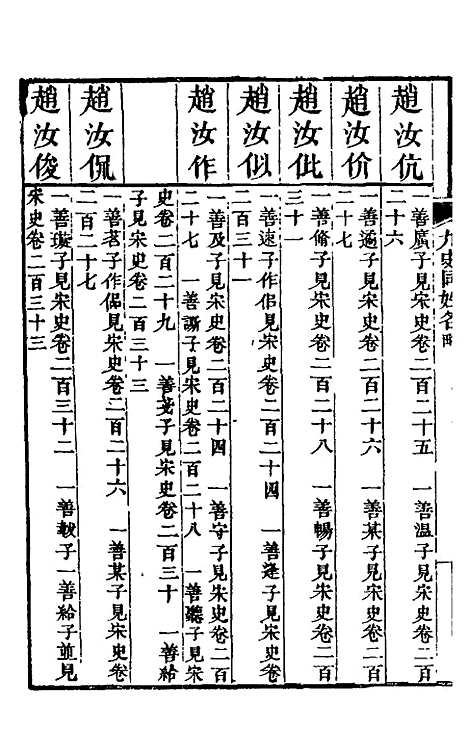 九史同姓名略
趙汝伉
一善廣子見宋史卷二百二十五　一善溫子見宋史卷二百
二十六
趙汝价
一善遹子見宋史卷二百二十六　一善某子見宋史卷二百
二十七
趙汝佌
一善脩子見宋史卷二百二十八　一善暢子見宋史卷二百
三十一
趙汝似
一善速子作佀見宋史卷二百二十四　一善逢子見宋史卷
二百三十一
趙汝作
一善及子見宋史卷二百二十四　一善守子見宋史卷二百
二十七　一善謭子見宋史卷二百二十八　一善聽子見宋
史卷二百二十九　一善戔子見宋史卷二百三十　一善給
子見宋史卷二百三十三
趙汝侃
一善茗子作偘見宋史卷二百二十六　一善某子見宋史卷
二百二十七
趙汝俊
一善璇子見宋史卷二百三十二　一善載子一善給子並見
宋史卷二百三十三